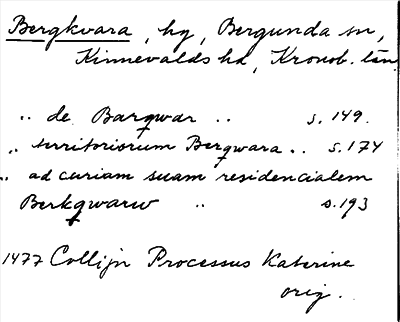 Bergkvara, hg, Bergunda sn,
Kinnevalds hd, Kronob. län
.. de Barqwar .. s. 149.
.. territoriorum Berqwara .. s. 174
.. ad curiam suam residencialem
Berkqwarw .. s. 193
1477 Collijn Processus Katerine
orig.